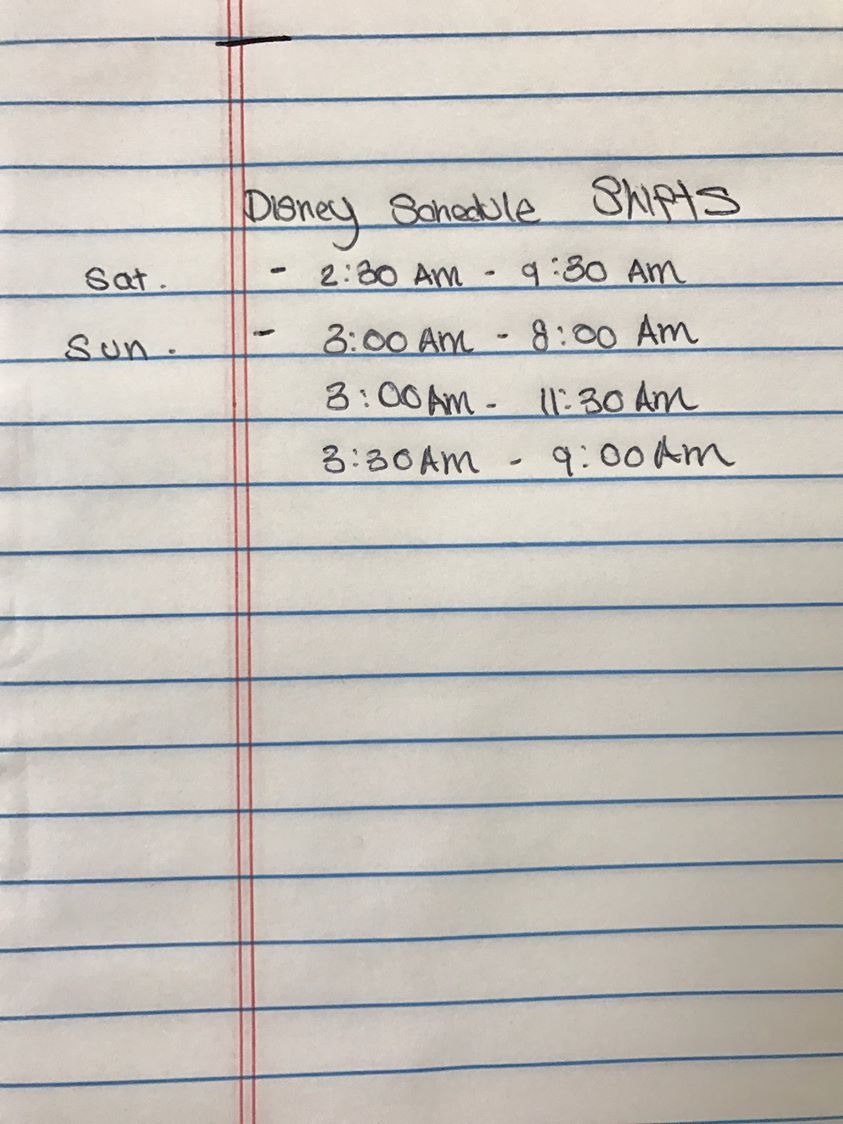 Disney Schedule Shifts
Sat. - 2:30 AM - 9:30 AM
Sun. - 3:00 AM - 8:00 AM
3:00 AM - 11:30 AM
3:30 AM - 9:00 AM